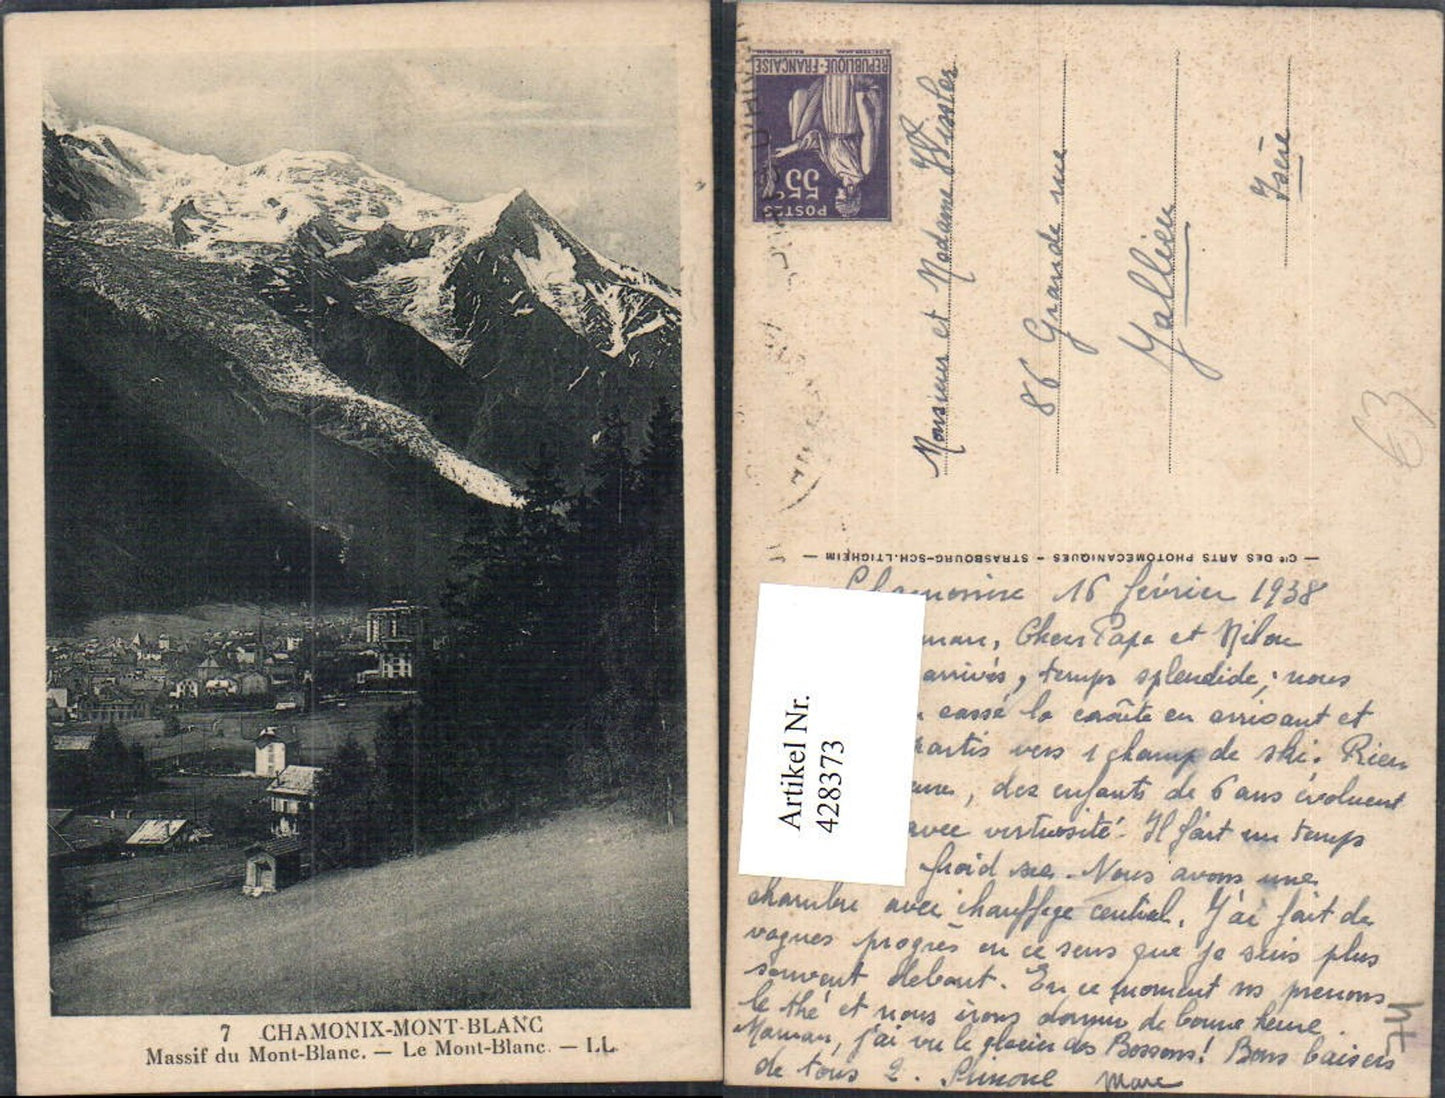 7 CHAMONIX-MONT-BLANC
Massif du Mont-Blanc. — Le Mont-Blanc. — LL
REPUBLIQUE-FRANÇAISE
55c
POSTES
Monsieur et Madame
86 Grande rue
Jallieu
Isère
63
— Cie DES ARTS PHOTOMECANIQUES - STRASBOURG-SCH.LTIGHEIM —
Artikel Nr.
428373
16 février 1938
Chers Papa et
arrivés, temps splendide; nous
cassé la croûte en arrivant et
vers 1 champ de ski. Rien
, des enfants de 6 ans évoluent
avec virtuosité. Il fait un temps
froid sec. Nous avons une
chambre avec chauffage central. J'ai fait de
vagues progrès en ce sens que je suis plus
souvent debout. En ce moment ns prenons
le thé et nous irons dormir de bonne heure.
Maman, j'ai vu le glacier des Bossons! Bons baisers
de tous 2. Simone Marc